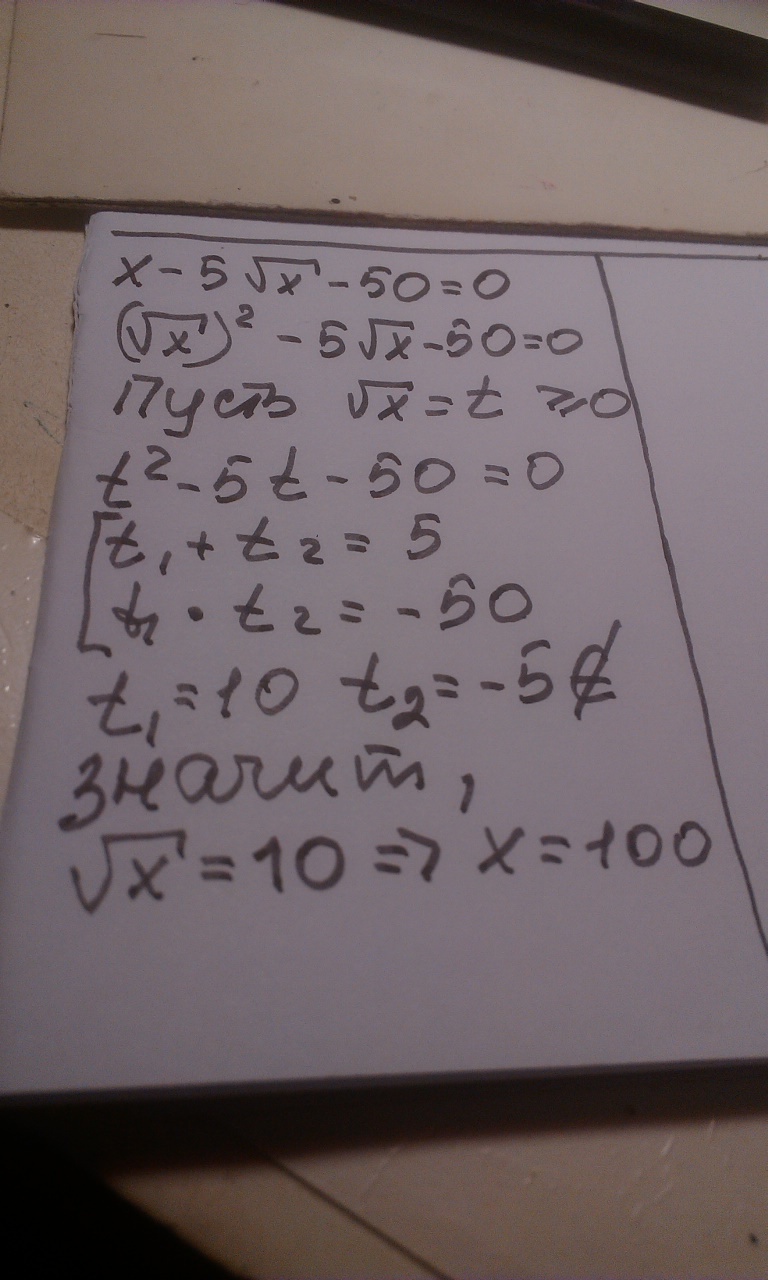 x - 5√x - 50 = 0
(√x)² - 5√x - 50 = 0
Пусть √x = t ⩾ 0
t² - 5t - 50 = 0
[t₁ + t₂ = 5
t₁ · t₂ = -50
t₁ = 10 t₂ = -5 ∉
значит,
√x = 10 => x = 100